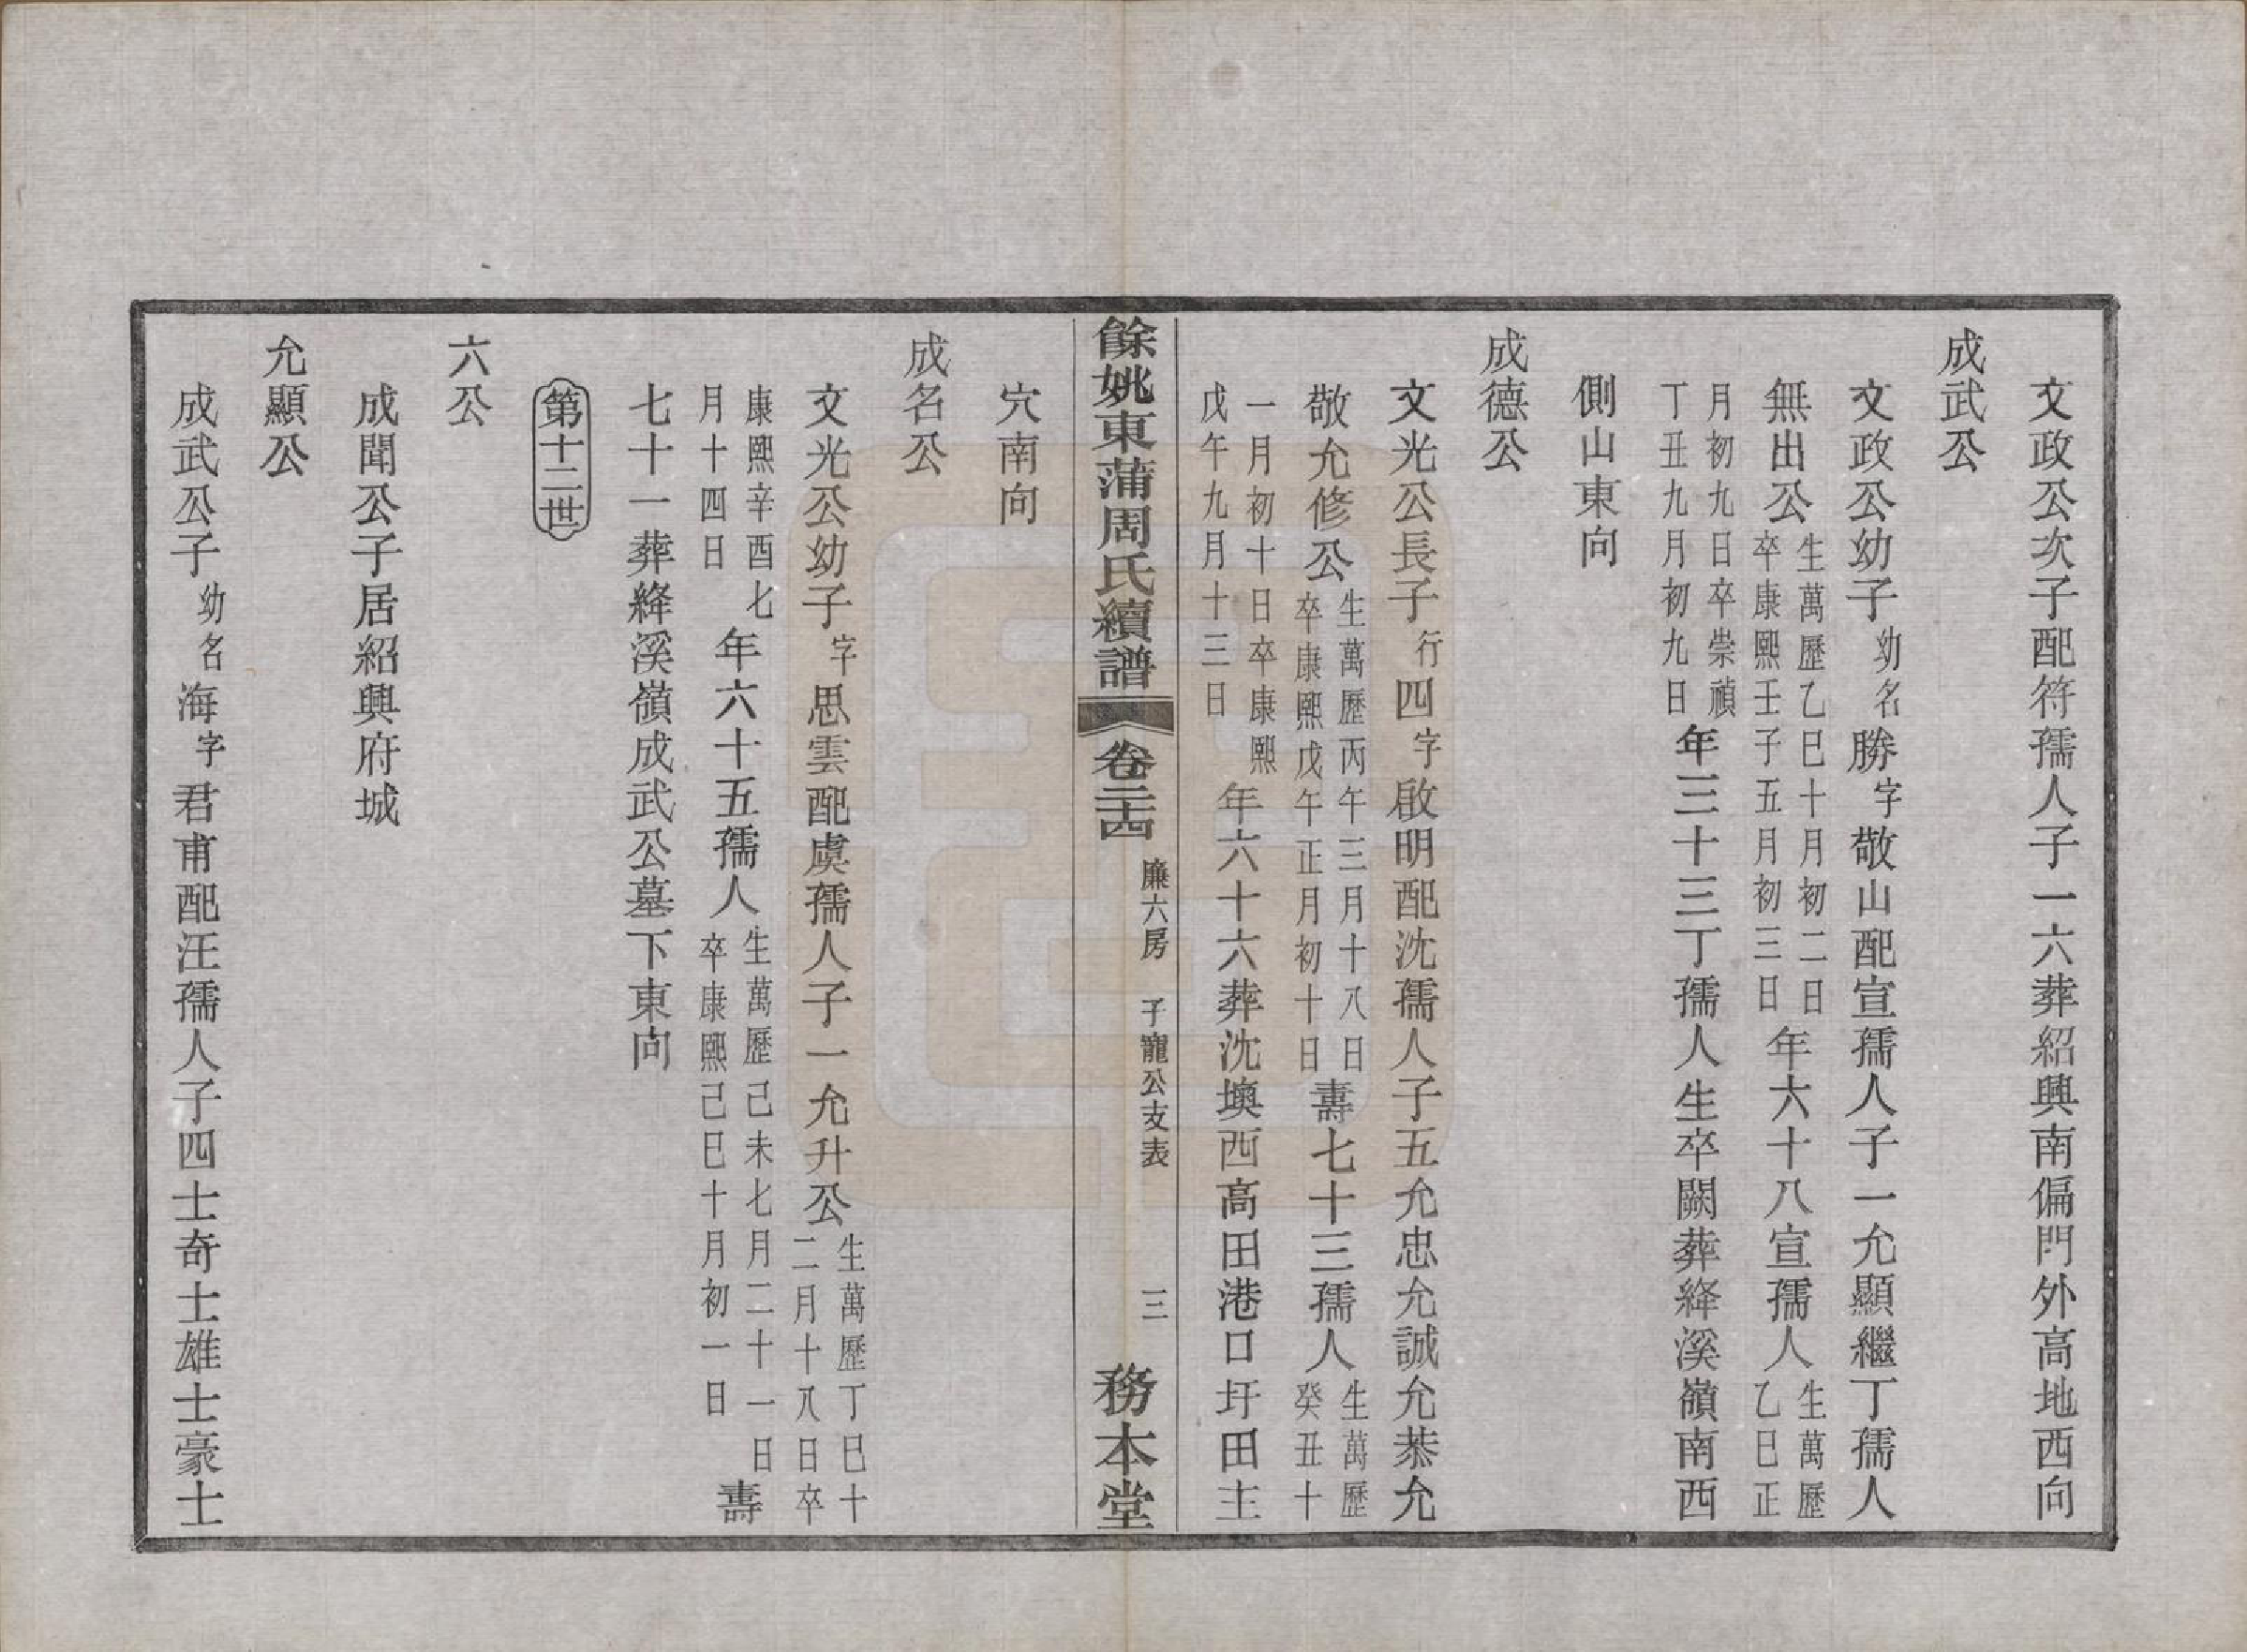 文政公次子配符孺人子一六葬紹興南偏門外高地西向
成武公
文政公幼子幼名勝字敬山配宣孺人子一允顯繼丁孺人
無出公生萬歷乙巳十月初二日卒康熙壬子五月初三日年六十八宣孺人生萬歷乙巳正
月初九日卒崇禎丁丑九月初九日年三十三丁孺人生卒闕葬絳溪嶺南西
側山東向
成德公
文光公長子行四字啟明配沈孺人子五允忠允誠允恭允
敬允修公生萬歷丙午三月十八日卒康熙戊午正月初十日壽七十三孺人生萬歷癸丑十
一月初十日卒康熙戊午九月十三日年六十六葬沈墺西高田港口圩田主
餘姚東蒲周氏續譜 卷二十四 廉六房 子寵公支表 三 務本堂
穴南向
成名公
文光公幼子字思雲配虞孺人子一允升公生萬歷丁巳十二月十八日卒
康熙辛酉七月十四日年六十五孺人生萬歷己未七月二十一日卒康熙己巳十月初一日壽
七十一葬絳溪嶺成武公墓下東向
第十二世
六公
成聞公子居紹興府城
允顯公
成武公子幼名海字君甫配汪孺人子四士奇士雄士豪士